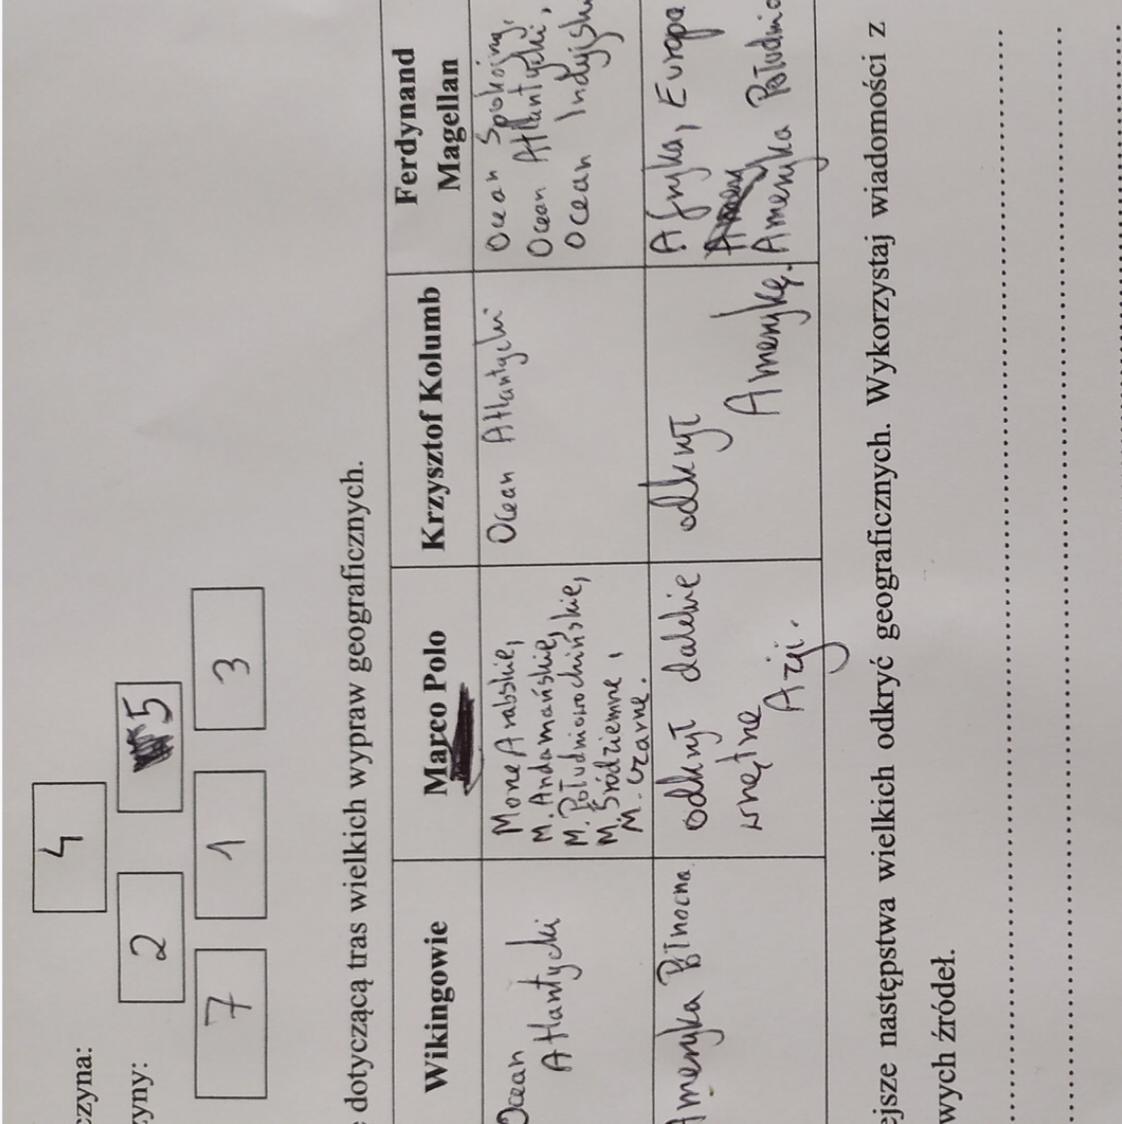 czyna:
4
zyny:
2
5
7
1
3
dotyczącą tras wielkich wypraw geograficznych.
Wikingowie
Marco Polo
Krzysztof Kolumb
Ferdynand
Magellan
Ocean
Atlantycki
Morze Arabskie,
M. Andamańskie,
M. Południowochińskie,
M. Śródziemne,
M. Czarne.
Ocean Atlantycki
Ocean Spokojny,
Ocean Atlantycki,
Ocean Indyjski
Ameryka Północna
odkrył dalekie
wnętrze
Azji.
odkrył
Amerykę.
Afryka, Europa
Ameryka Południo
ejsze następstwa wielkich odkryć geograficznych. Wykorzystaj wiadomości z
wych źródeł.